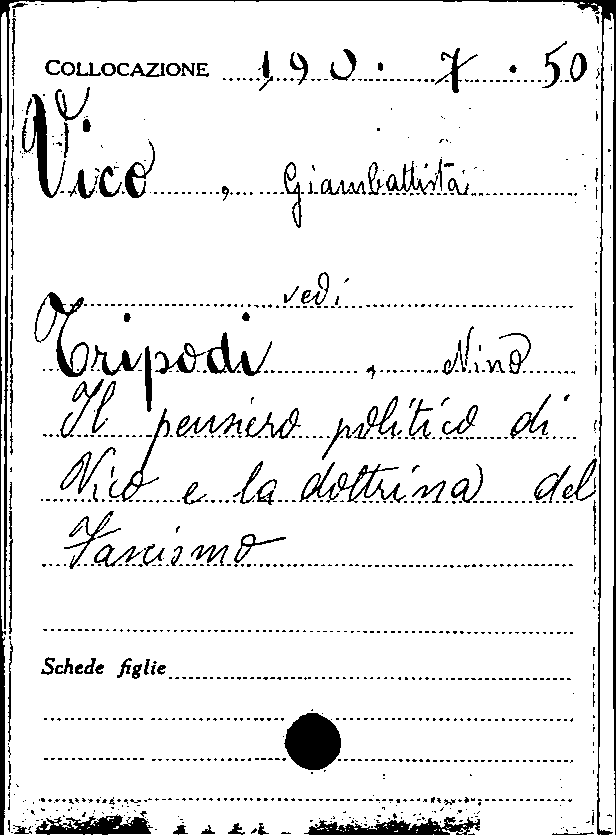 COLLOCAZIONE 190. 7. 50
Vico, Giambattista
vedi
Tripodi, Nino
Il pensiero politico di
Vico e la dottrina del
Fascismo
Schede figlie